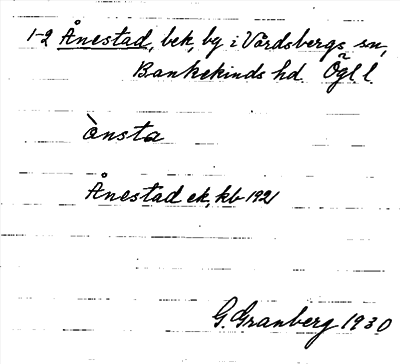 1-2 Ånestad, bek, by i Vårdsbergs sn,
Bankekinds hd. Ögl l.
ònsta
Ånestad ek, kb 1921
G. Granberg 1930